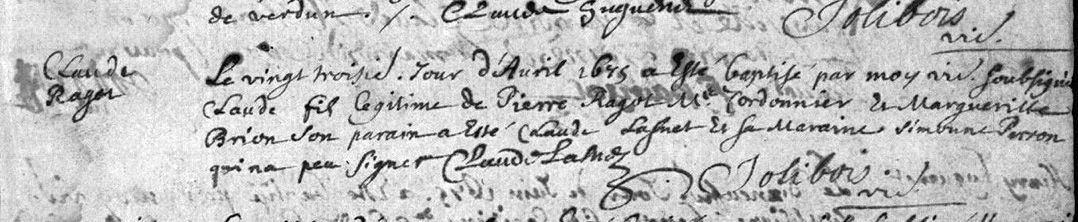 de verdun ./. Claude Huguenin Jolibois
vic.
Claude Ragot
Le vingt troisie. Jour d'Avril 1675 a Esté baptisé par moy vic. soubsigné
Claude fil legitime de Pierre Ragot Me Cordonnier Et Margueritte
Brion Son parain a Esté Claude Lasnet Et sa Maraine Simonne Perron
qui na peu signer Claude Lasnet
Jolibois
vic.